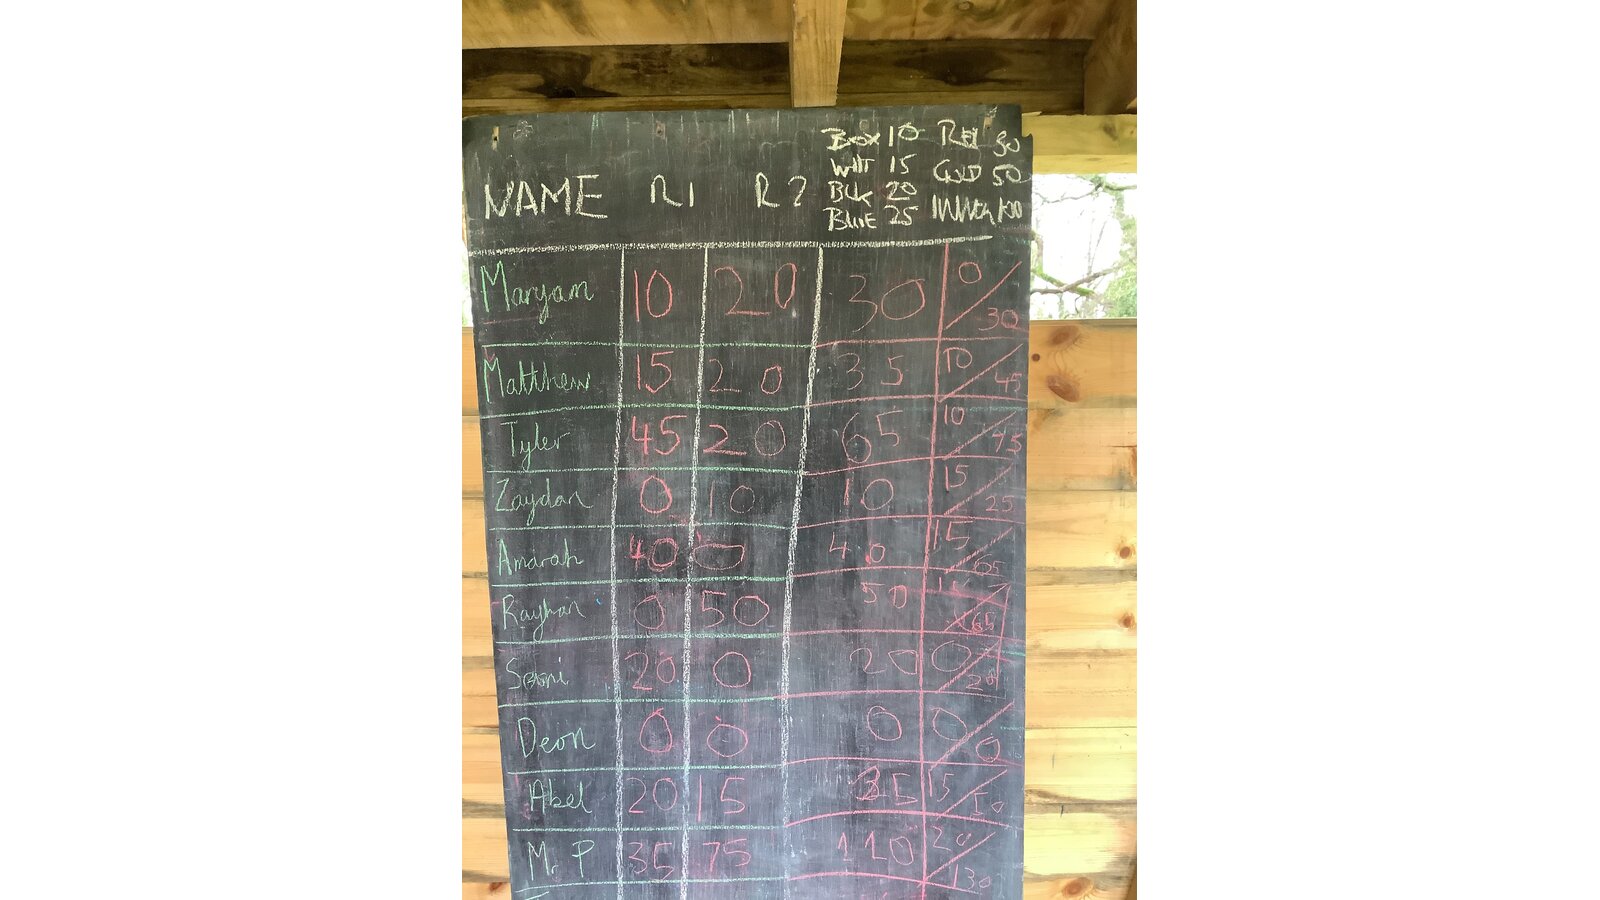 BOX 10 RED 30
WHT 15 GOLD 50
NAME R1 R2 BLK 20 INNER 100
BLUE 25
Maryam 10 20 30 0/30
Matthew 15 20 35 10/45
Tyler 45 20 65 10/75
Zaydan 0 10 10 15/25
Amarah 40 0 40 15/65
Rayhan 0 50 50 /65
20 0 20 0/20
Deon 0 0 0 0/0
Abel 20 15 35 15/50
Mr P 35 75 110 20/130